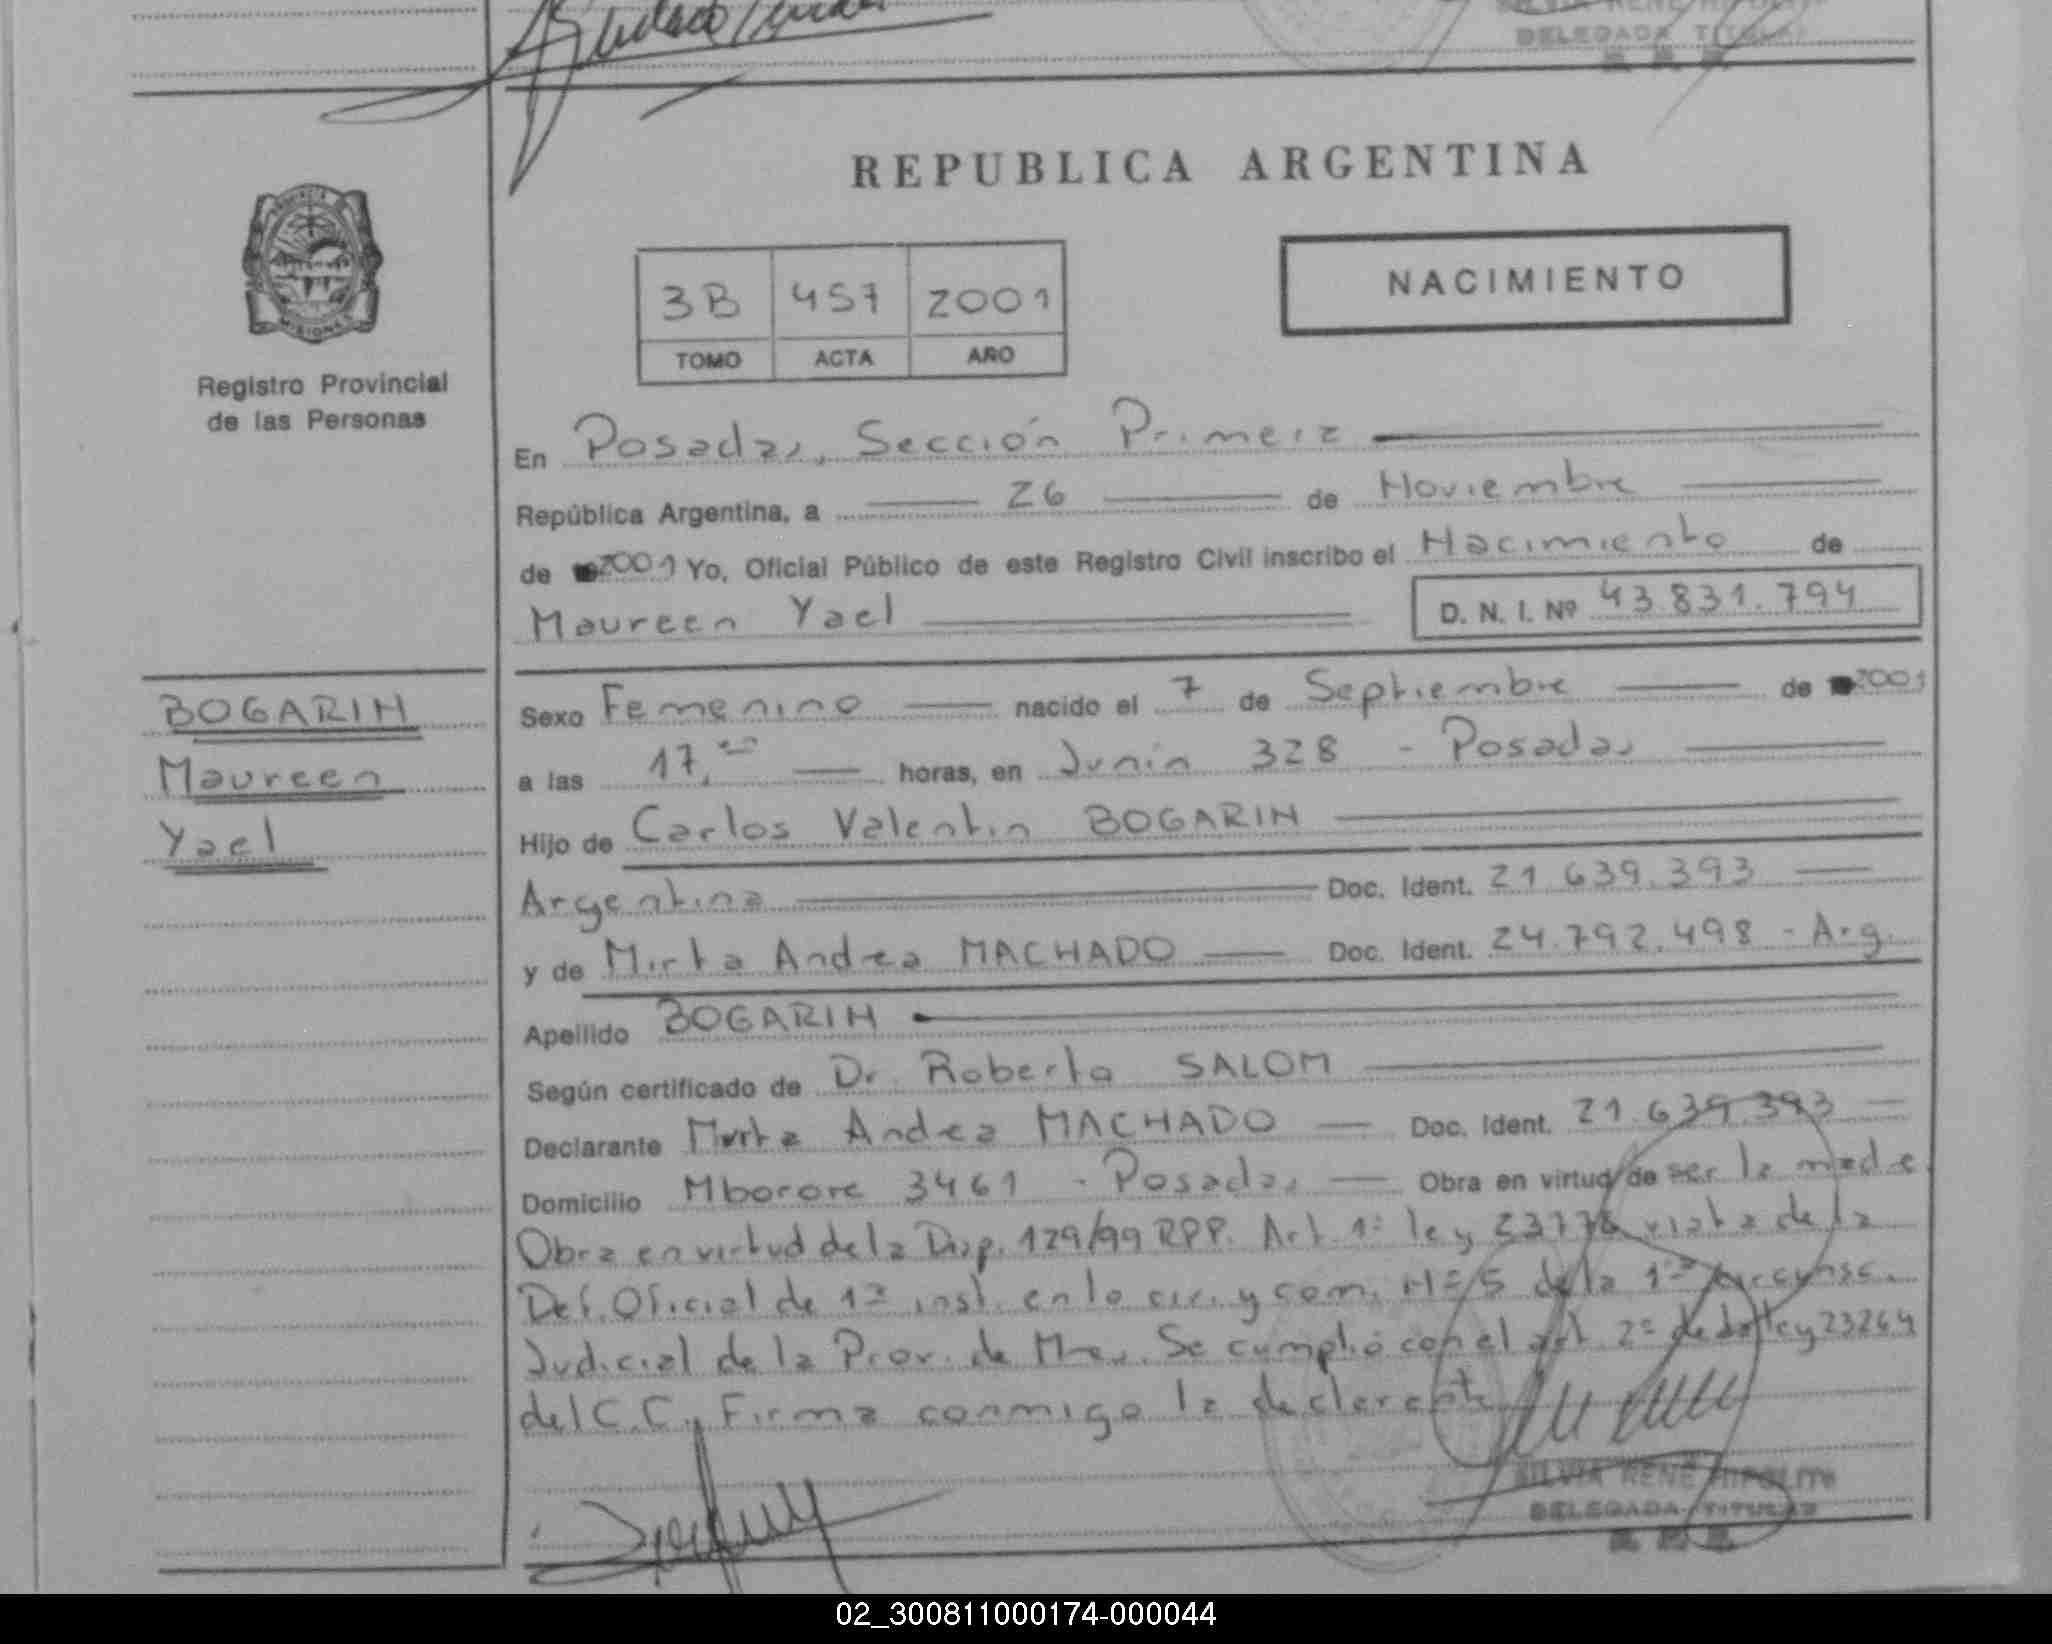 SILVIA RENE HIPOLITO
DELEGADA TITULAR
REPUBLICA ARGENTINA
PROVINCIA
MISIONES
3B 457 2001
TOMO ACTA AÑO
NACIMIENTO
Registro Provincial
de las Personas
En Posadas, Sección Primera
República Argentina, a 26 de Noviembre
de 2001 Yo, Oficial Público de este Registro Civil inscribo el Nacimiento de
Maureen Yael D. N. I. Nº 43.831.794
BOGARIN
Maureen
Yael
Sexo Femenino nacido el 7 de Septiembre de 2001
a las 17, horas, en Junín 328 - Posadas
Hijo de Carlos Valentin BOGARIN
Argentina Doc. Ident. 21.639.393
y de Mirta Andrea MACHADO Doc. Ident. 24.792.498 - Arg.
Apellido BOGARIN
Según certificado de Dr. Roberto SALOM
Declarante Mirta Andrea MACHADO Doc. Ident. 21.639.393
Domicilio Mborore 3461 - Posadas Obra en virtud de ser la madre
Obra en virtud de la Disp. 129/99 RPP. Art. 1º ley 23776 vista de la
Def. Oficial de 1ª inst. en lo civ. y com. Nº 5 de la 1ª circunsc.
Judicial de la Prov. de Mnes. Se cumplió con el art. 2º de la ley 23264
del C.C. Firma conmigo la declarante
SILVIA RENE HIPOLITO
DELEGADA TITULAR
02_300811000174-000044